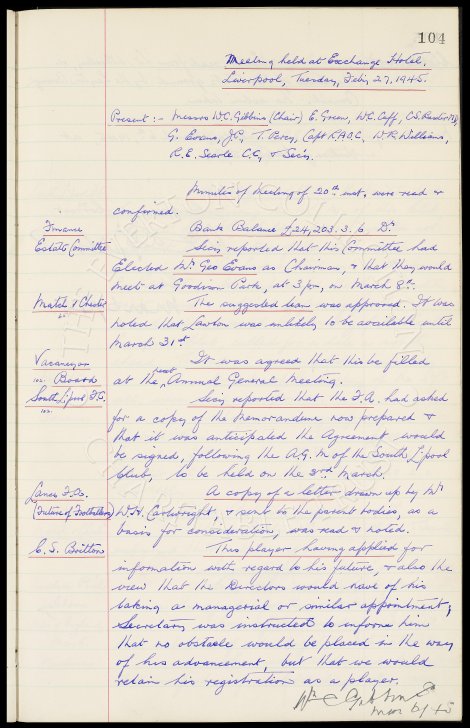 104
Meeting held at Exchange Hotel,
Liverpool, Tuesday, Feby 27, 1945.
Present :- Messrs W.C. Gibbins (Chair) E. Green, W.C. Cuff, C.S. Baxter M.P.,
G. Evans, J.P., T. Percy, Capt. R.A.O.C., W.R. Williams,
R.E. Searle C.C., & Secy.
Minutes of Meeting of 20th inst, were read &
confirmed.
Finance
Bank Balance £24,203. 3. 6 Dr
Estate Committee
Secy reported that this Committee had
Elected Mr. Geo Evans as Chairman, & that they would
meet at Goodison Park, at 3 pm, on March 8th.
Match v Chester
The suggested team was approved. It was
noted that Lawton was unlikely to be available until
March 31st
Vacancy on
Board
It was agreed that this be filled
at the next Annual General Meeting.
South L'pool F.C.
Secy reported that the F.A. had asked
for a copy of the Memorandum now prepared &
that it was anticipated the Agreement would
be signed, following the A.G.M of the South L'pool
Club, to be held on the 3rd March.
Lancs F.A.
(Future of Football)
A copy of a letter drawn up by Mr
W.H. Cartwright, & sent to the parent bodies, as a
basis for consideration, was read & noted.
C.S. Britton
This player having applied for
information with regard to his future, & also the
view that the Directors would have of his
taking a managerial or similar appointment,
Secretary was instructed to inform him
that no obstacle would be placed in the way
of his advancement, but that we would
retain his registration as a player.
Wm C Gibbins
Mar 6/45